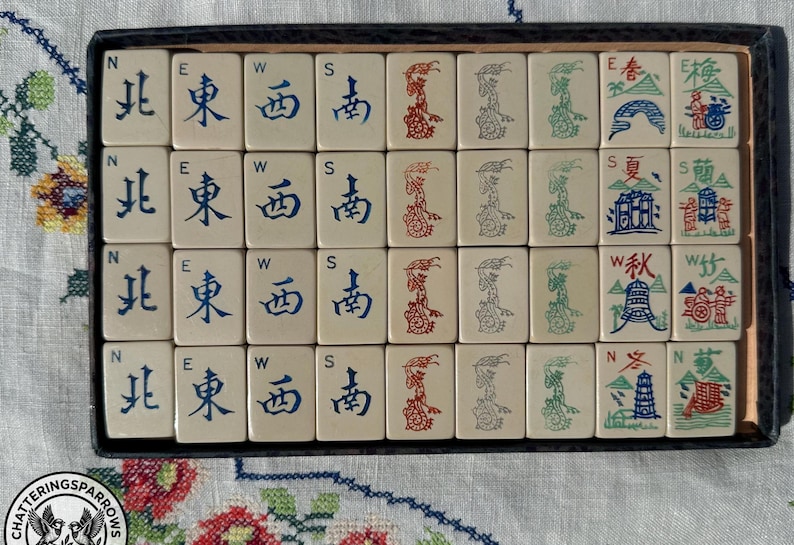 N 北 E 東 W 西 S 南 E 春 E 梅
N 北 E 東 W 西 S 南 S 夏 S 蘭
N 北 E 東 W 西 S 南 W 秋 W 竹
N 北 E 東 W 西 S 南 N 冬 N 菊
CHATTERINGSPARROWS